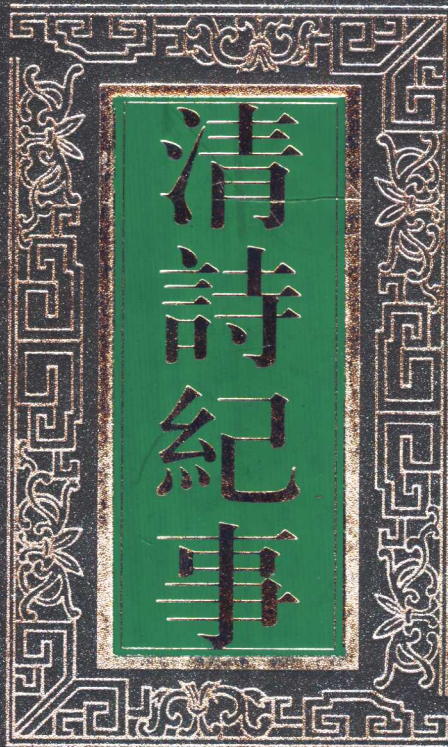 清詩紀事